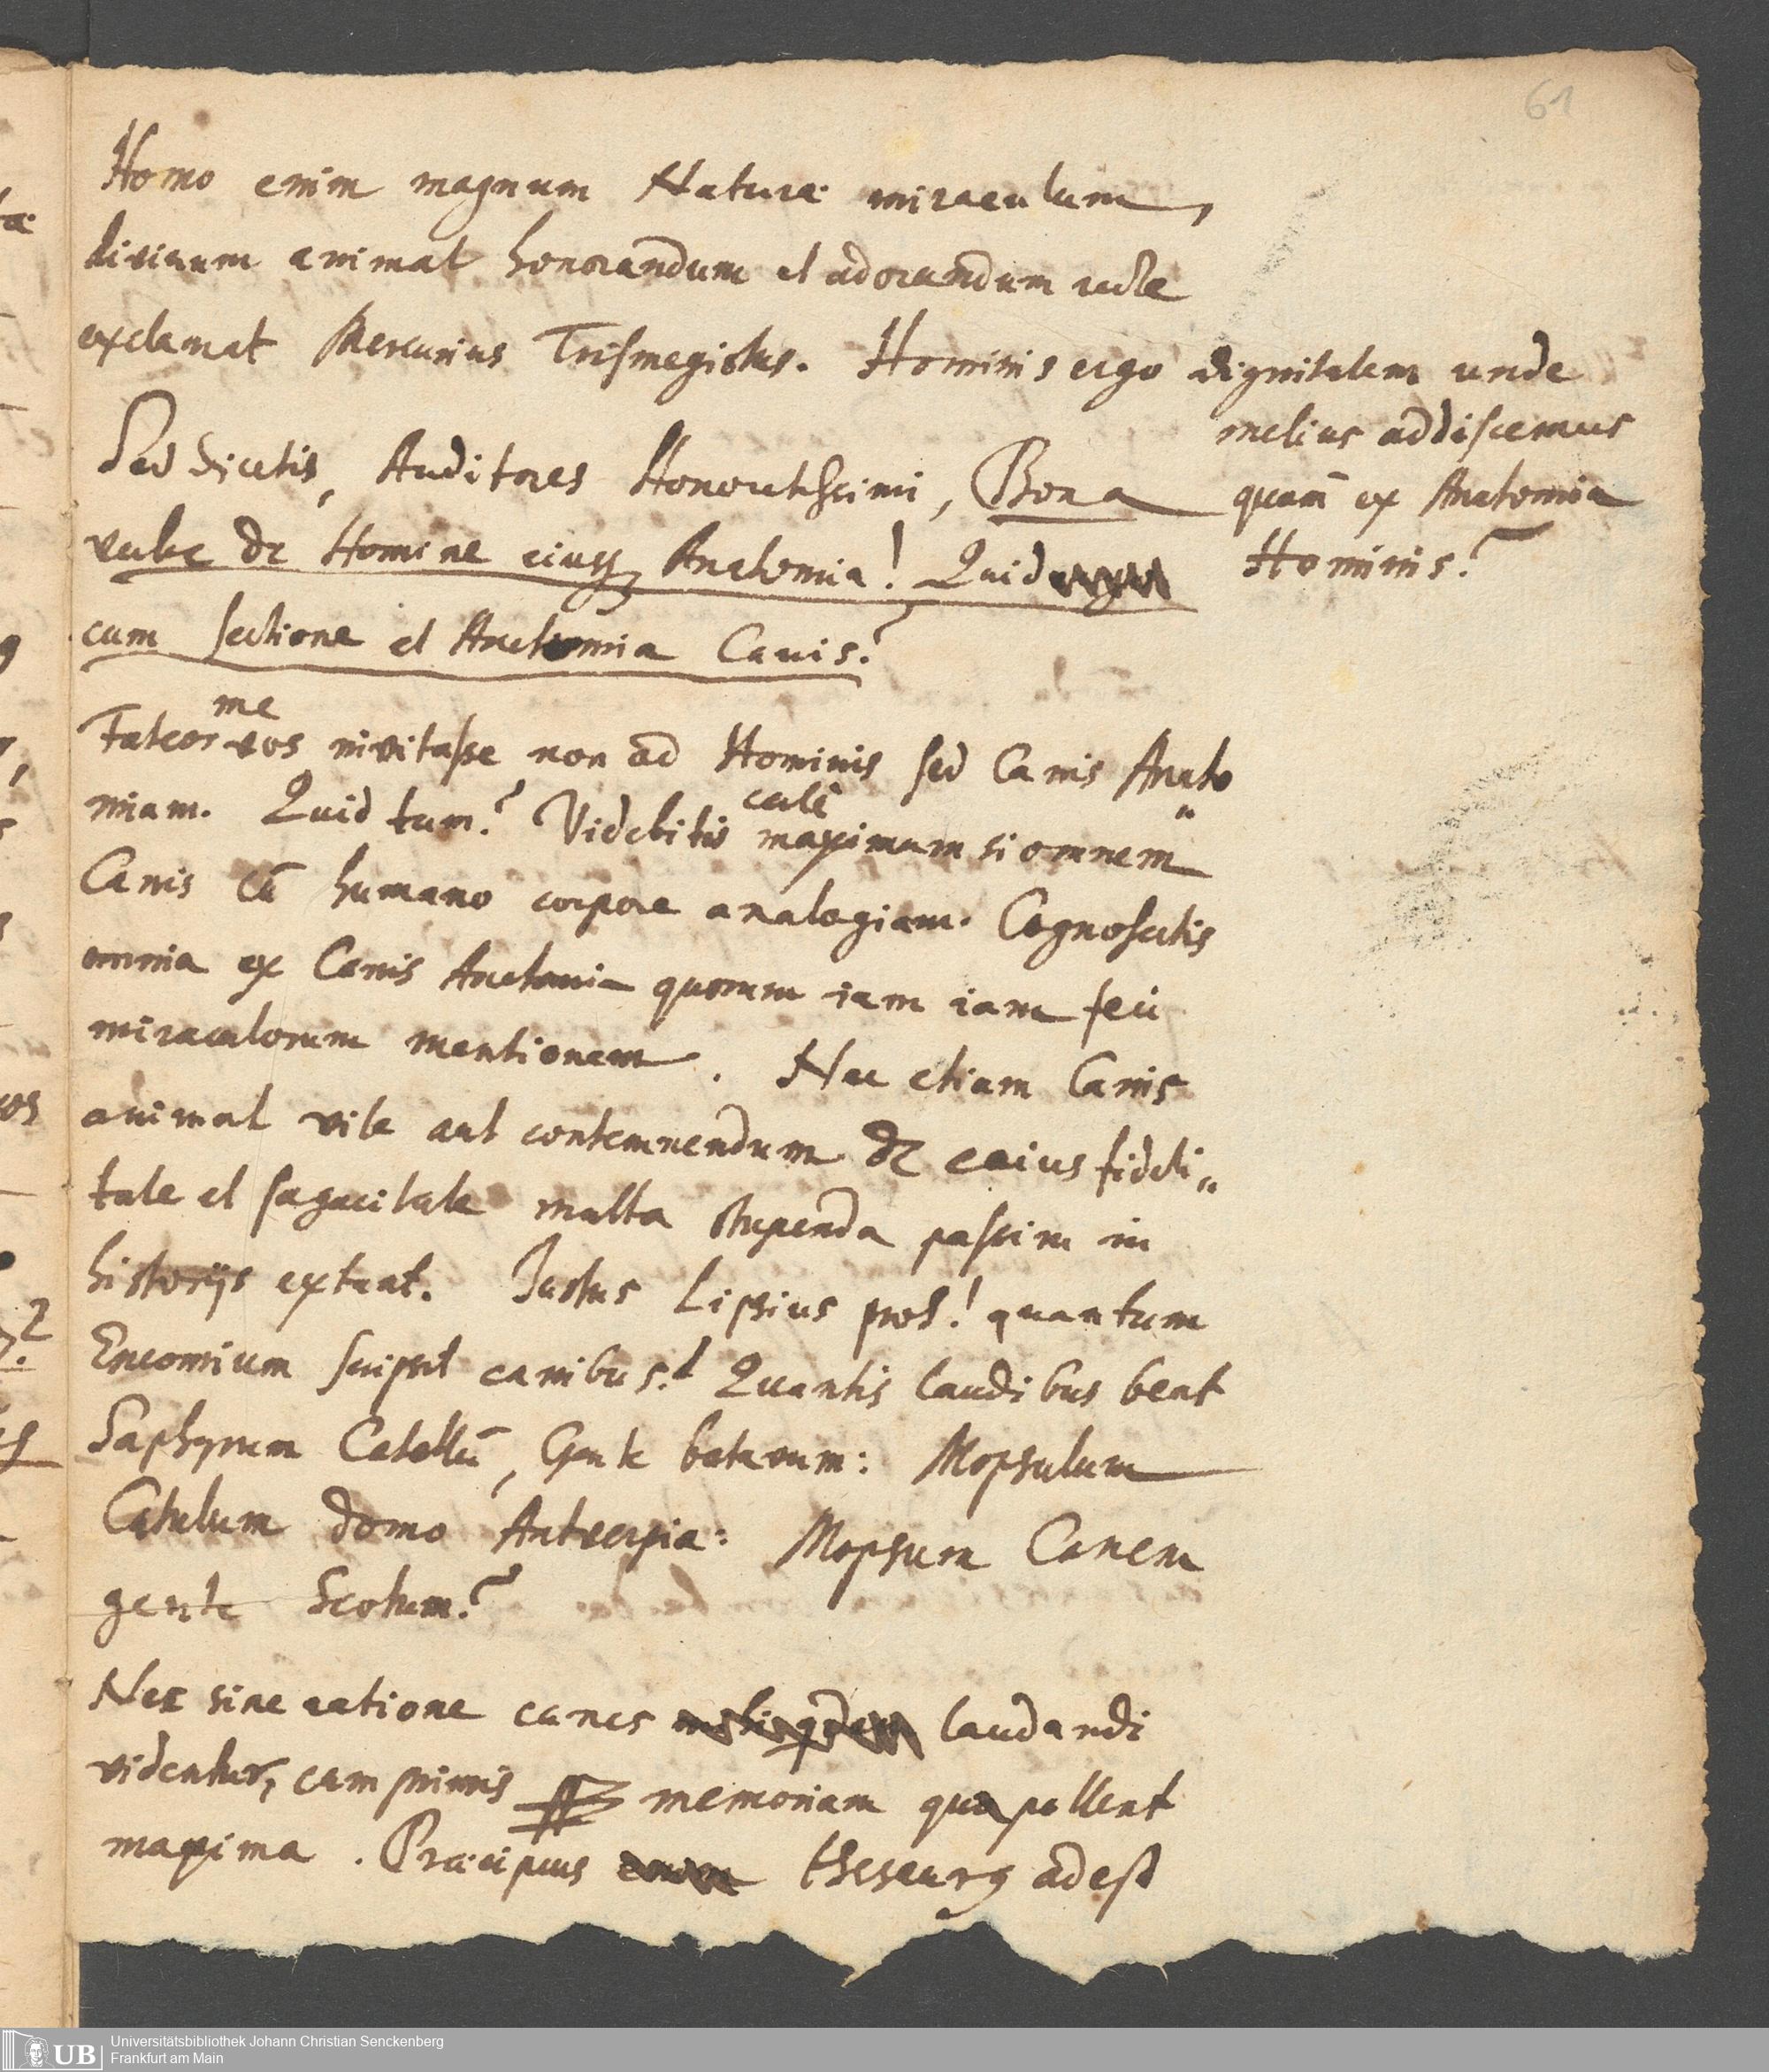 61
Homo enim magnum Naturæ miraculum,
divinum animal honorandum et adorandum recte
exclamat Mercurius Trismegistus. Hominis ergo dignitatem unde
melius addiscemus
quam̄ ex Anatomia
Hominis?
Sed dicetis, Auditores Honoratissimi, Bona
verba de Homine eiusq; Anatomia! Quid
cum sectione et Anatomia Canis?
me
Fateor vos invitasse non ad Hominis sed Canis Anato„
miam. Quid tum? Videbitis maximum si omnem
Canis cū humano corpore analogiam. Cognoscetis
omnia ex Canis Anatomia quorum iam iam feci
miraculorum mentionem. Nec etiam Canis
animal vile aut contemnendum de cuius fideli„
tate et sagacitate multa stupenda passim in
historijs extant. Justus Lipsius proh! quantum
Encomium scripsit canibus! Quantis laudibus beat
Saphyrum Catellū, Gente batavum: Mopsulum
Catulum domo Antverpia: Mopsum Canem
gente Scotum?
Nec sine ratione canes laudandi
videntur, cum primis memoriam qua pollent
maxima. Præcipuus thesaurg adest
UB
Universitätsbibliothek Johann Christian Senckenberg
Frankfurt am Main